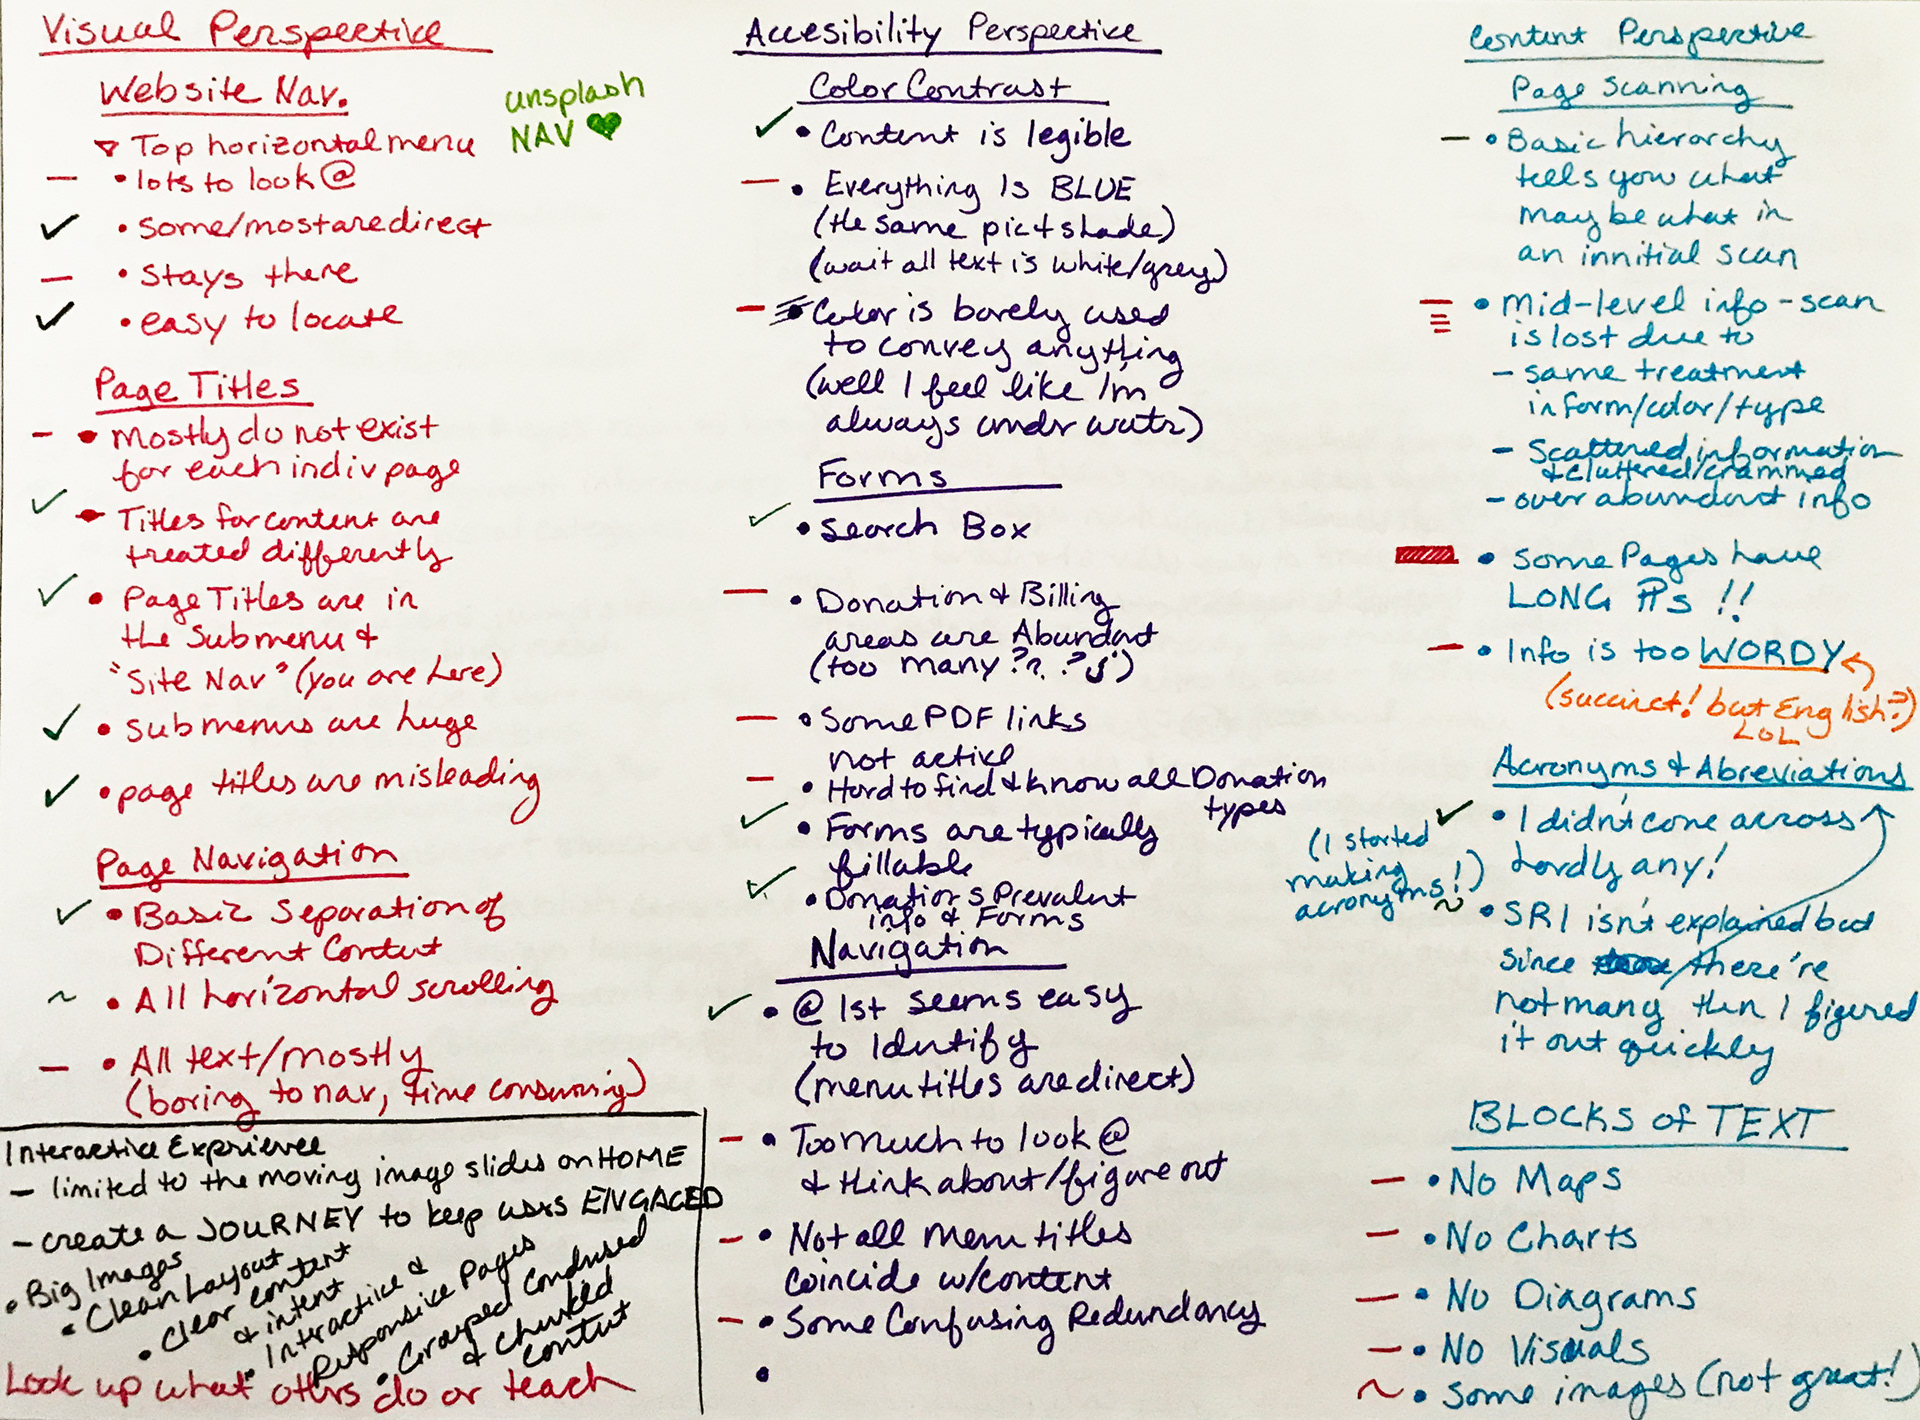 Visual Perspective
Website Nav.
unsplash
NAV ♥
▽ Top horizontal menu
– • lots to look @
✓ • some/most are direct
– • stays there
✓ • easy to locate
Page Titles
– • mostly do not exist
for each indiv page
✓ • Titles for content are
treated differently
✓ • Page Titles are in
the submenu &
"Site Nav" (you are here)
✓ • submenus are huge
✓ • page titles are misleading
Page Navigation
✓ • Basic Separation of
Different Content
~ • All horizontal scrolling
– • All text/mostly
(boring to nav, time consuming)
Interactive Exprience
– limited to the moving image slides on HOME
– create a JOURNEY to keep users ENGAGED
• Big Images
• Clean Layout
• Clear content
& intent
• Interactive &
Responsive Pages
• Grouped Condensed
& Chunked
content
Look up what others do or teach
Accesibility Perspective
Color Contrast
✓ • Content is legible
– • Everything is BLUE
(the same pict shade)
(wait all text is white/grey)
– • Color is barely used
to convey anything
(well I feel like I'm
always under water)
Forms
✓ • Search Box
– • Donation & Billing
areas are Abundant
(too many ??.?'s)
– • Some PDF links
not active
– • Hard to find & know all Donation
types
✓ • Forms are typically
fillable
✓ • Donations Prevalent
info & Forms
Navigation
✓ • @ 1st seems easy
to Identify
(menu titles are direct)
– • Too much to look @
& think about/figure out
– • Not all menu titles
coincide w/content
– • Some Confusing Redundancy
•
Content Perspective
Page Scanning
– • Basic hierarchy
tells you what
may be what in
an innitial scan
• Mid-level info-scan
is lost due to
– same treatment
in form/color/type
– Scattered information
& cluttered/crammed
– over abundant info
• Some Pages have
LONG ¶s !!
– • Info is too WORDY
(succinct! but English?)
LOL
Acronyms & Abreviations
✓ • I didn't come across
hardly any!
(I started
making
acronyms!)
~ • SRI isn't explained but
since there're
not many then I figured
it out quickly
BLOCKS of TEXT
– • No Maps
– • No Charts
– • No Diagrams
– • No Visuals
~ • Some images (not great!)